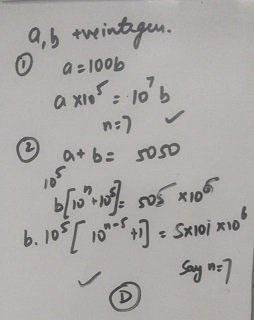 a, b +ve integer.
① a = 100b
a × 10⁵ = 10⁷ b
n = 7 ✓
② a + b = 5050
10⁵
b[10ⁿ + 10⁵] = 505 × 10⁶
b. 10⁵ [ 10ⁿ⁻⁵ + 1 ] = 5 × 101 × 10⁶
Say n = 7
✓
Ⓓ